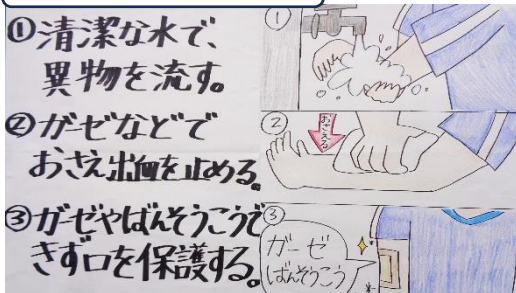 ①清潔な水で、
異物を流す。
②ガーゼなどで
おさえ出血を止める。
③ガーゼやばんそうこうで
きず口を保護する。
①
②
おさえる
③
ガーゼ
ばんそうこう